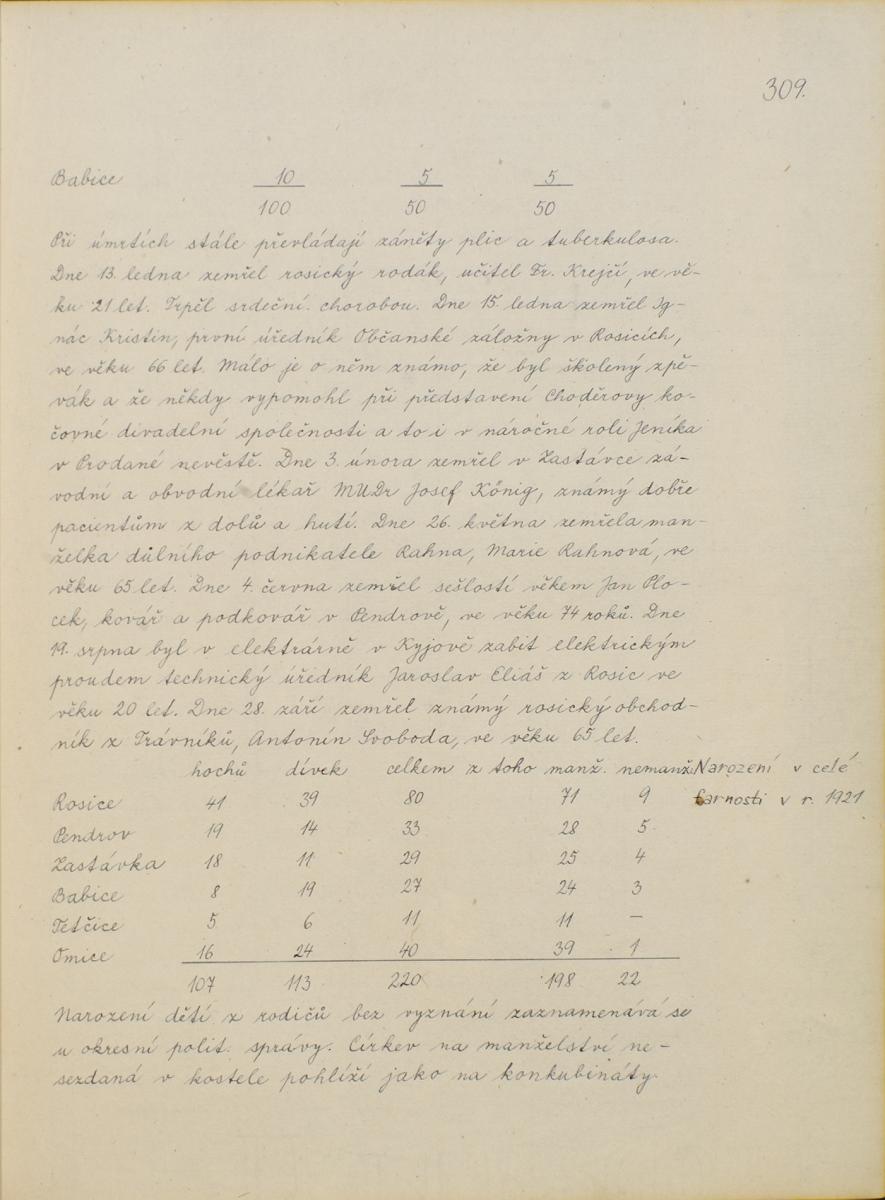 309.
Babice 10 5 5
100 50 50
Při úmrtích stále převládají záněty plic a tuberkulosa.
Dne 13. ledna zemřel rosický rodák, učitel Fr. Krejčí, ve vě-
ku 21 let. Trpěl srdeční chorobou. Dne 15. ledna zemřel Ig-
nác Kristin, první úředník Občanské záložny v Rosicích,
ve věku 66 let. Málo je o něm známo, že byl školený zpě-
vák a že někdy vypomohl při představení Choděrovy ko-
čovné divadelní společnosti a to i v náročné roli Jeníka
v Prodané nevěstě. Dne 3. února zemřel v Zastávce zá-
vodní a obvodní lékař MUDr Josef König, známý dobře
pacientům z dolů a hutí. Dne 26. května zemřela man-
želka důlního podnikatele Rahna, Marie Rahnová, ve
věku 65 let. Dne 4. června zemřel sešlostí věkem Jan Plo-
cek, kovář a podkovář v Pendrově, ve věku 74 roků. Dne
19. srpna byl v elektrárně v Kyjově zabit elektrickým
proudem technický úředník Jaroslav Eliáš z Rosic ve
věku 20 let. Dne 28. září zemřel známý rosický obchod-
ník z Trávníků, Antonín Svoboda, ve věku 65 let.
hochů dívek celkem z toho manž. nemanž. Narození v celé
Rosice 41 39 80 71 9 farnosti v r. 1921
Pendrov 19 14 33 28 5
Zastávka 18 11 29 25 4
Babice 8 19 27 24 3
Tetčice 5 6 11 11 —
Omice 16 24 40 39 1
107 113 220 198 22
Narození dětí z rodičů bez vyznání zaznamenává se
u okresní polit. správy. Církev na manželství ne-
sezdaná v kostele pohlíží jako na konkubináty.